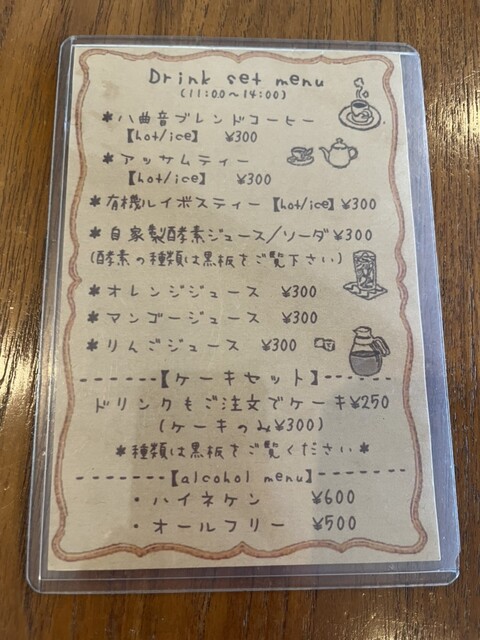 Drink set menu
(11:00〜14:00)
＊八曲音ブレンドコーヒー
【hot/ice】 ¥300
＊アッサムティー
【hot/ice】 ¥300
＊有機ルイボスティー【hot/ice】¥300
＊自家製酵素ジュース/ソーダ¥300
(酵素の種類は黒板をご覧下さい)
＊オレンジジュース ¥300
＊マンゴージュース ¥300
＊りんごジュース ¥300
-------【ケーキセット】-------
ドリンクもご注文でケーキ¥250
(ケーキのみ¥300)
＊種類は黒板をご覧ください＊
-------【alcohol menu】-------
・ハイネケン ¥600
・オールフリー ¥500